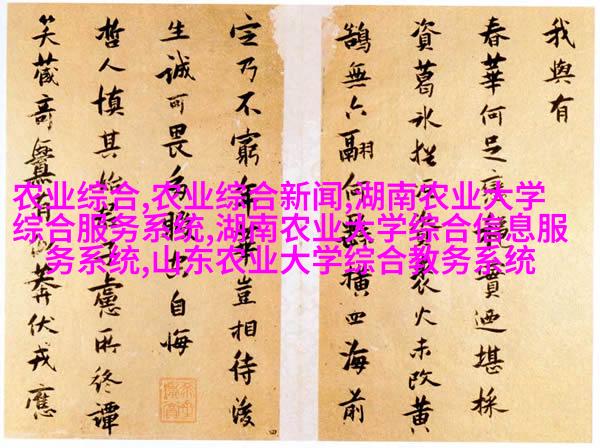 我與有
春華何足實迺堪採
資葛氷裘火未改黃
鵠無六翮何橫四海前
定乃不窮年豈相待後
生誠可畏多自悔
哲人慎其始子慮所終譚
笑藏奇釁有莽伏戎應
四
农业综合,农业综合新闻,湖南农业大学
综合服务系统,湖南农业大学综合信息服
务系统,山东农业大学综合教务系统